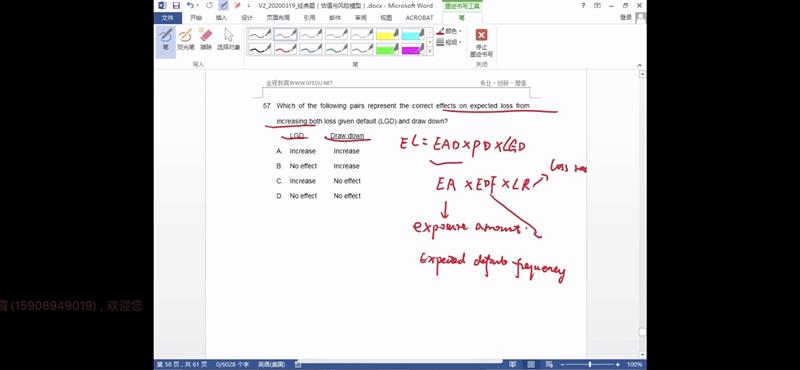 V2_20200319_经典题（估值与风险模型）.docx - Word
墨迹书写工具
文件 开始 插入 设计 页面布局 引用 邮件 审阅 视图 ACROBAT 笔
登录
笔 荧光笔 擦除 选择对象
颜色
粗细
停止
墨迹书写
写入 笔 关闭
金程教育WWW.GFEDU.NET 专业·创新·增值
57 Which of the following pairs represent the correct effects on expected loss from
increasing both loss given default (LGD) and draw down?
LGD Draw down
A. Increase Increase
B. No effect Increase
C. Increase No effect
D. No effect No effect
EL = EAD × PD × LGD
EA × EDF × LR
loss
exposure amount.
Expected default frequency
霞 (15908949019)，欢迎您
第 58 页，共 61 页 0/6028 个字 英语(美国) 100%